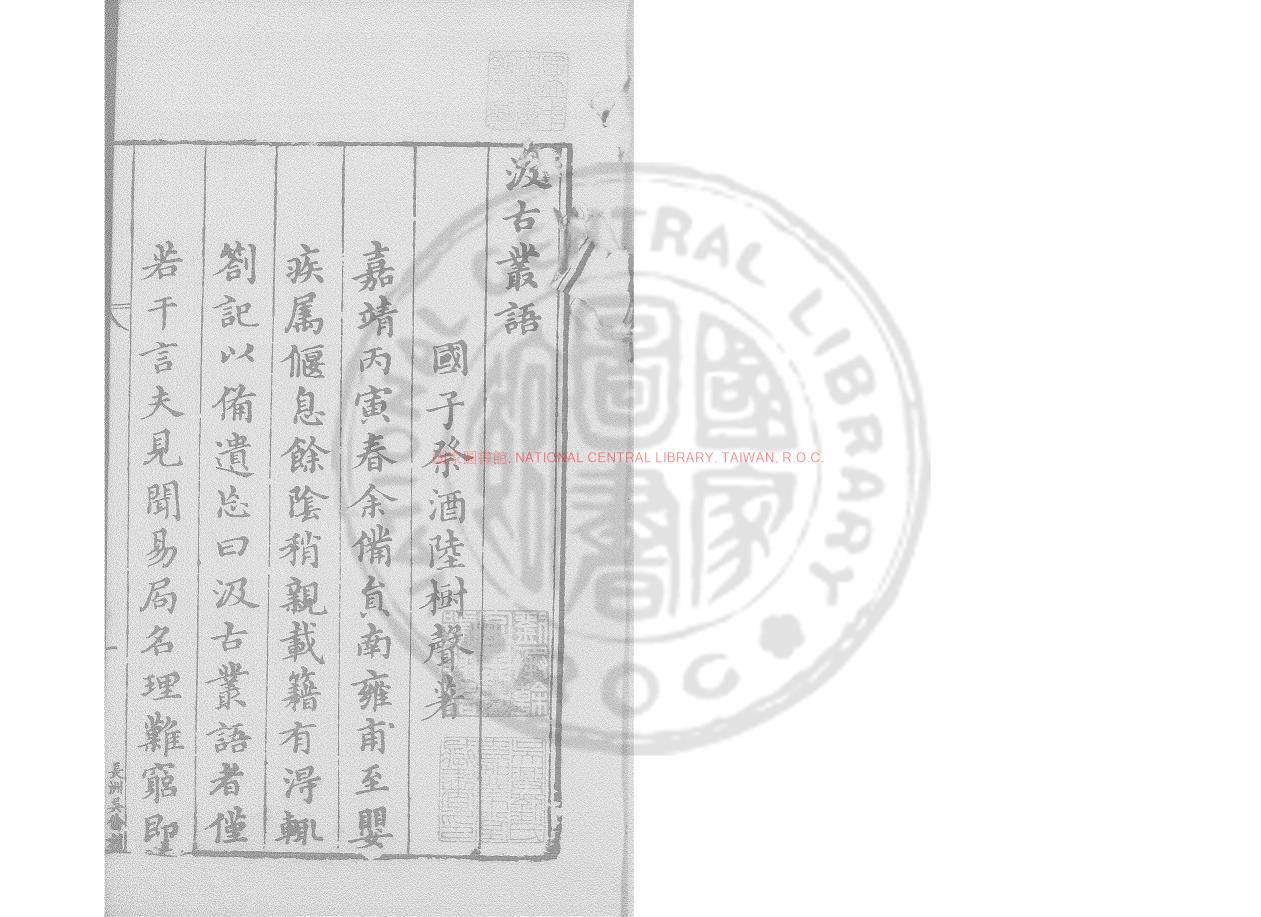 汲古叢語
國子祭酒陸樹聲著
嘉靖丙寅春余備貟南雍甫至嬰
疾属偃息餘陰稍親載籍有淂輙
劄記以俻遺忘曰汲古叢語者僅
若干言夫見聞易局名理難窮即
一
長洲吳
國家圖書館, NATIONAL CENTRAL LIBRARY, TAIWAN, R.O.C.
國家圖書
CENTRAL LIBRARY
R.O.C